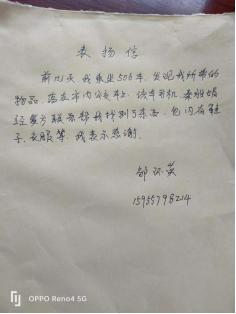 表扬信
前几天 我乘坐506车，发现我所带的
物品，落在市内公交车上，该车司机
经多方联系帮我找到了东西，包内有鞋
子，衣服等，我表示感谢。
邹
15955798214
OPPO Reno4 5G